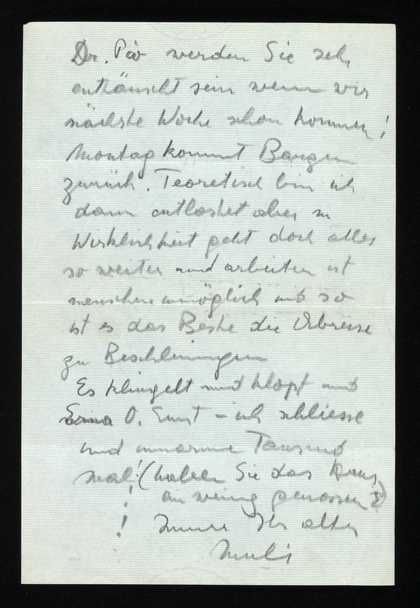 Dr. Piò werden Sie sehr
enttäuscht sein wenn wir
nächste Woche schon kommen!
Montag kommt Bargen
zurück. Teoretisch bin ich
dann entlastet aber in
Wirklichkeit geht doch alles
so weiter und arbeiten ist
menschen unmöglich und so
ist es das Beste die Abreise
zu Beschleunigen
Es klingelt und klopft und
O. Ernst – ich schliesse
und umarme Tausend
mal! (haben Sie das Haus
ein wenig genossen?)
! Immer Ihr alter